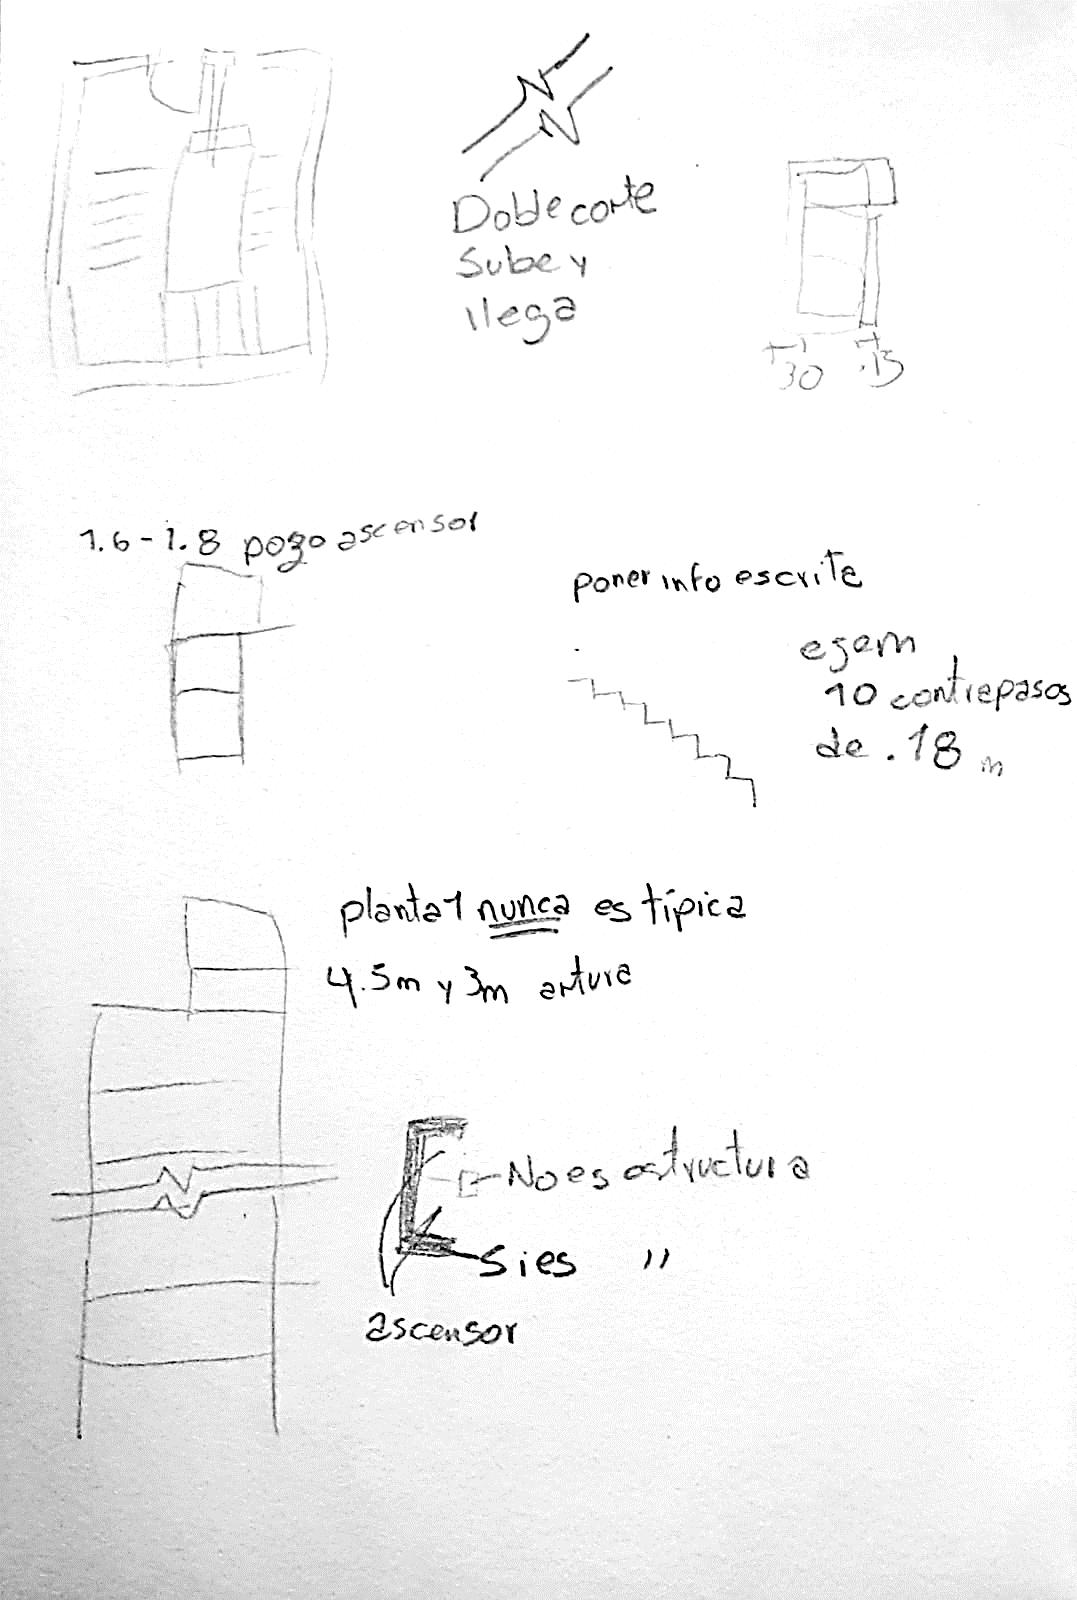 Doble corte
Sube y
llega
30 .15
1.6-1.8 pozo ascensor
poner info escrita
egem
10 contrapasos
de .18 m
planta 1 nunca es típica
4.5m y 3m artura
No es estructura
Si es "
ascensor